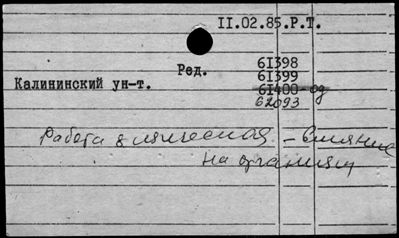 II.02.85.Р.Т.
Ред. 61398
61399
Калининский ун-т. 61400-од
62093
Работа - влияние
на организм